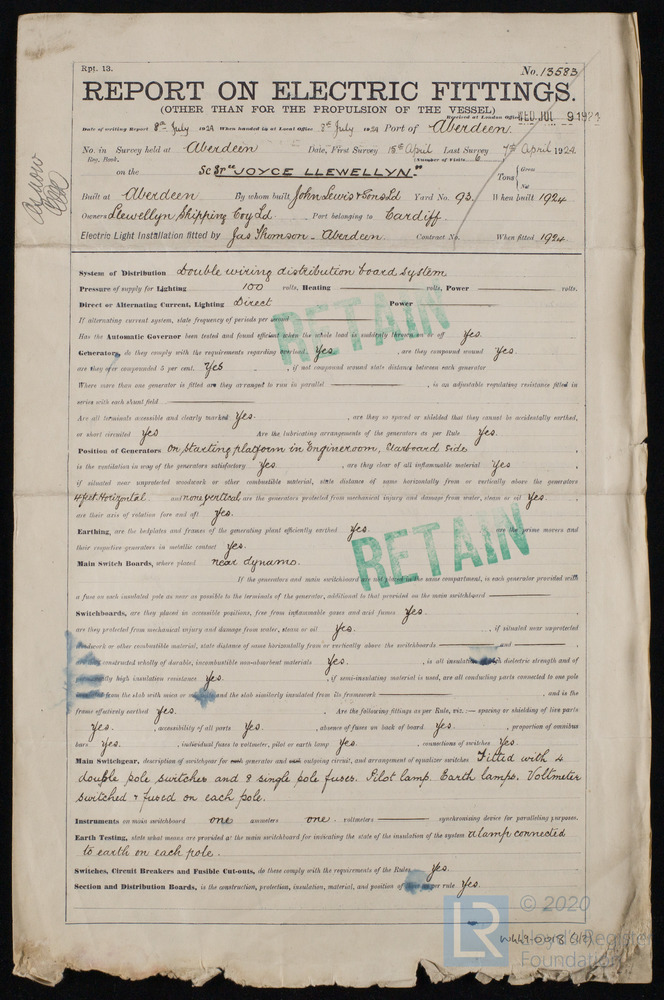 Rpt. 13.
No. 13583
REPORT ON ELECTRIC FITTINGS.
(OTHER THAN FOR THE PROPULSION OF THE VESSEL)
Received at London Office WED. JUL 9 1924
Date of writing Report 8th July 1924 When handed in at Local Office July 1924 Port of Aberdeen.
No. in Survey held at Aberdeen Date, First Survey 18th April Last Survey 7th April 1924
Reg. Book. (Number of Visits 6
on the Sc Sr "JOYCE LLEWELLYN." Tons { Gross Net
Built at Aberdeen By whom built John Lewis & Sons Ld Yard No. 93. When built 1924
Owners Llewellyn Shipping Coy Ld Port belonging to Cardiff.
Electric Light Installation fitted by Jas Thomson - Aberdeen Contract No. When fitted 1924
System of Distribution Double wiring distribution board system
Pressure of supply for Lighting 100 volts, Heating volts, Power volts.
Direct or Alternating Current, Lighting Direct Power
If alternating current system, state frequency of periods per second
Has the Automatic Governor been tested and found efficient when the whole load is suddenly thrown on or off Yes.
Generators, do they comply with the requirements regarding overload Yes, are they compound wound Yes.
are they over compounded 5 per cent. Yes, if not compound wound state distance between each generator
Where more than one generator is fitted are they arranged to run in parallel , is an adjustable regulating resistance fitted in
series with each shunt field
Are all terminals accessible and clearly marked Yes. , are they so spaced or shielded that they cannot be accidentally earthed,
or short circuited Yes Are the lubricating arrangements of the generators as per Rule Yes.
Position of Generators On starting platform in Engineroom, Starboard side
is the ventilation in way of the generators satisfactory Yes , are they clear of all inflammable material Yes ,
if situated near unprotected woodwork or other combustible material, state distance of same horizontally from or vertically above the generators
4 feet Horizontal and none vertical are the generators protected from mechanical injury and damage from water, steam or oil Yes.
are their axis of rotation fore and aft Yes.
Earthing, are the bedplates and frames of the generating plant efficiently earthed Yes. are the prime movers and
their respective generators in metallic contact Yes.
Main Switch Boards, where placed near dynamo.
If the generators and main switchboard are not placed in the same compartment, is each generator provided with
a fuse on each insulated pole as near as possible to the terminals of the generator, additional to that provided on the main switchboard
Switchboards, are they placed in accessible positions, free from inflammable gases and acid fumes Yes.
are they protected from mechanical injury and damage from water, steam or oil Yes. , if situated near unprotected
woodwork or other combustible material, state distance of same horizontally from or vertically above the switchboards and
constructed wholly of durable, incombustible non-absorbent materials Yes. , is all insulation high dielectric strength and of
high insulation resistance Yes. , if semi-insulating material is used, are all conducting parts connected to one pole
from the slab with mica or and the slab similarly insulated from its framework , and is the
frame effectively earthed Yes. Are the following fittings as per Rule, viz. :— spacing or shielding of live parts
Yes. , accessibility of all parts Yes. , absence of fuses on back of board Yes. , proportion of omnibus
bars Yes. , individual fuses to voltmeter, pilot or earth lamp Yes. , connections of switches Yes.
Main Switchgear, description of switchgear for each generator and each outgoing circuit, and arrangement of equalizer switches Fitted with 4
double pole switches and 8 single pole fuses. Pilot lamp. Earth lamps. Voltmeter
switched & fused on each pole.
Instruments on main switchboard one ammeters one. voltmeters synchronising device for paralleling purposes.
Earth Testing, state what means are provided at the main switchboard for indicating the state of the insulation of the system a lamp connected
to earth on each pole.
Switches, Circuit Breakers and Fusible Cut-outs, do these comply with the requirements of the Rules Yes.
Section and Distribution Boards, is the construction, protection, insulation, material, and position of these as per rule Yes.
RETAIN
RETAIN
© 2020
LR
Lloyd's Register
Foundation